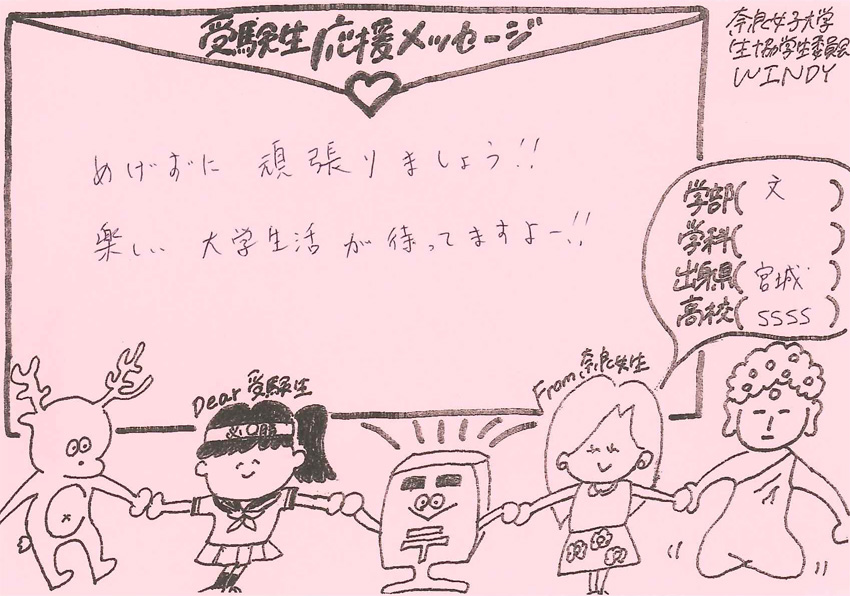 受験生応援メッセージ
奈良女子大学
生協学生委員会
WINDY
めげずに 頑張りましょう!!
楽しい 大学生活 が 待ってますよー!!
学部( 文 )
学科( )
出身県( 宮城 )
高校( SSSS )
Dear 受験生
From 奈良女生
必〇勝
〒